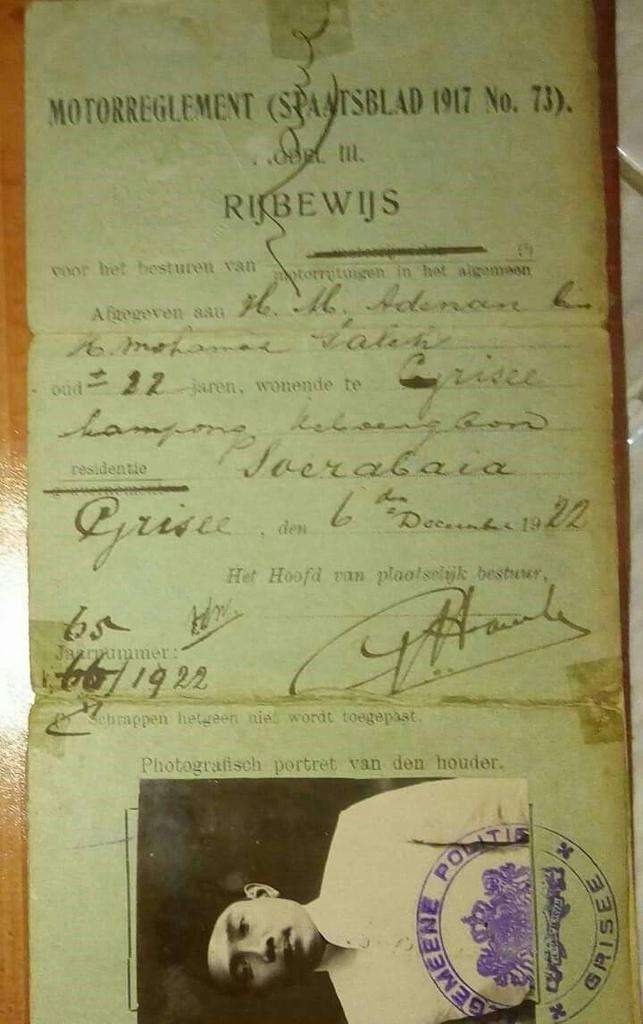 MOTORREGLEMENT (STAATSBLAD 1917 No. 73).
III.
RIJBEWIJS
voor het besturen van motorrijtuigen in het algemeen
Afgegeven aan H. M. Adenan bin
H. Mohamad Saleh
oud ± 22 jaren, wonende te Grisee
kampong
residentie Soerabaia
Grisee, den 6 den December 1922
Het Hoofd van plaatselijk bestuur,
65
Jaarnummer:
66/1922
Schrappen hetgeen niet wordt toegepast.
Photografisch portret van den houder.
ALGEMEENE POLITIE
GRISEE